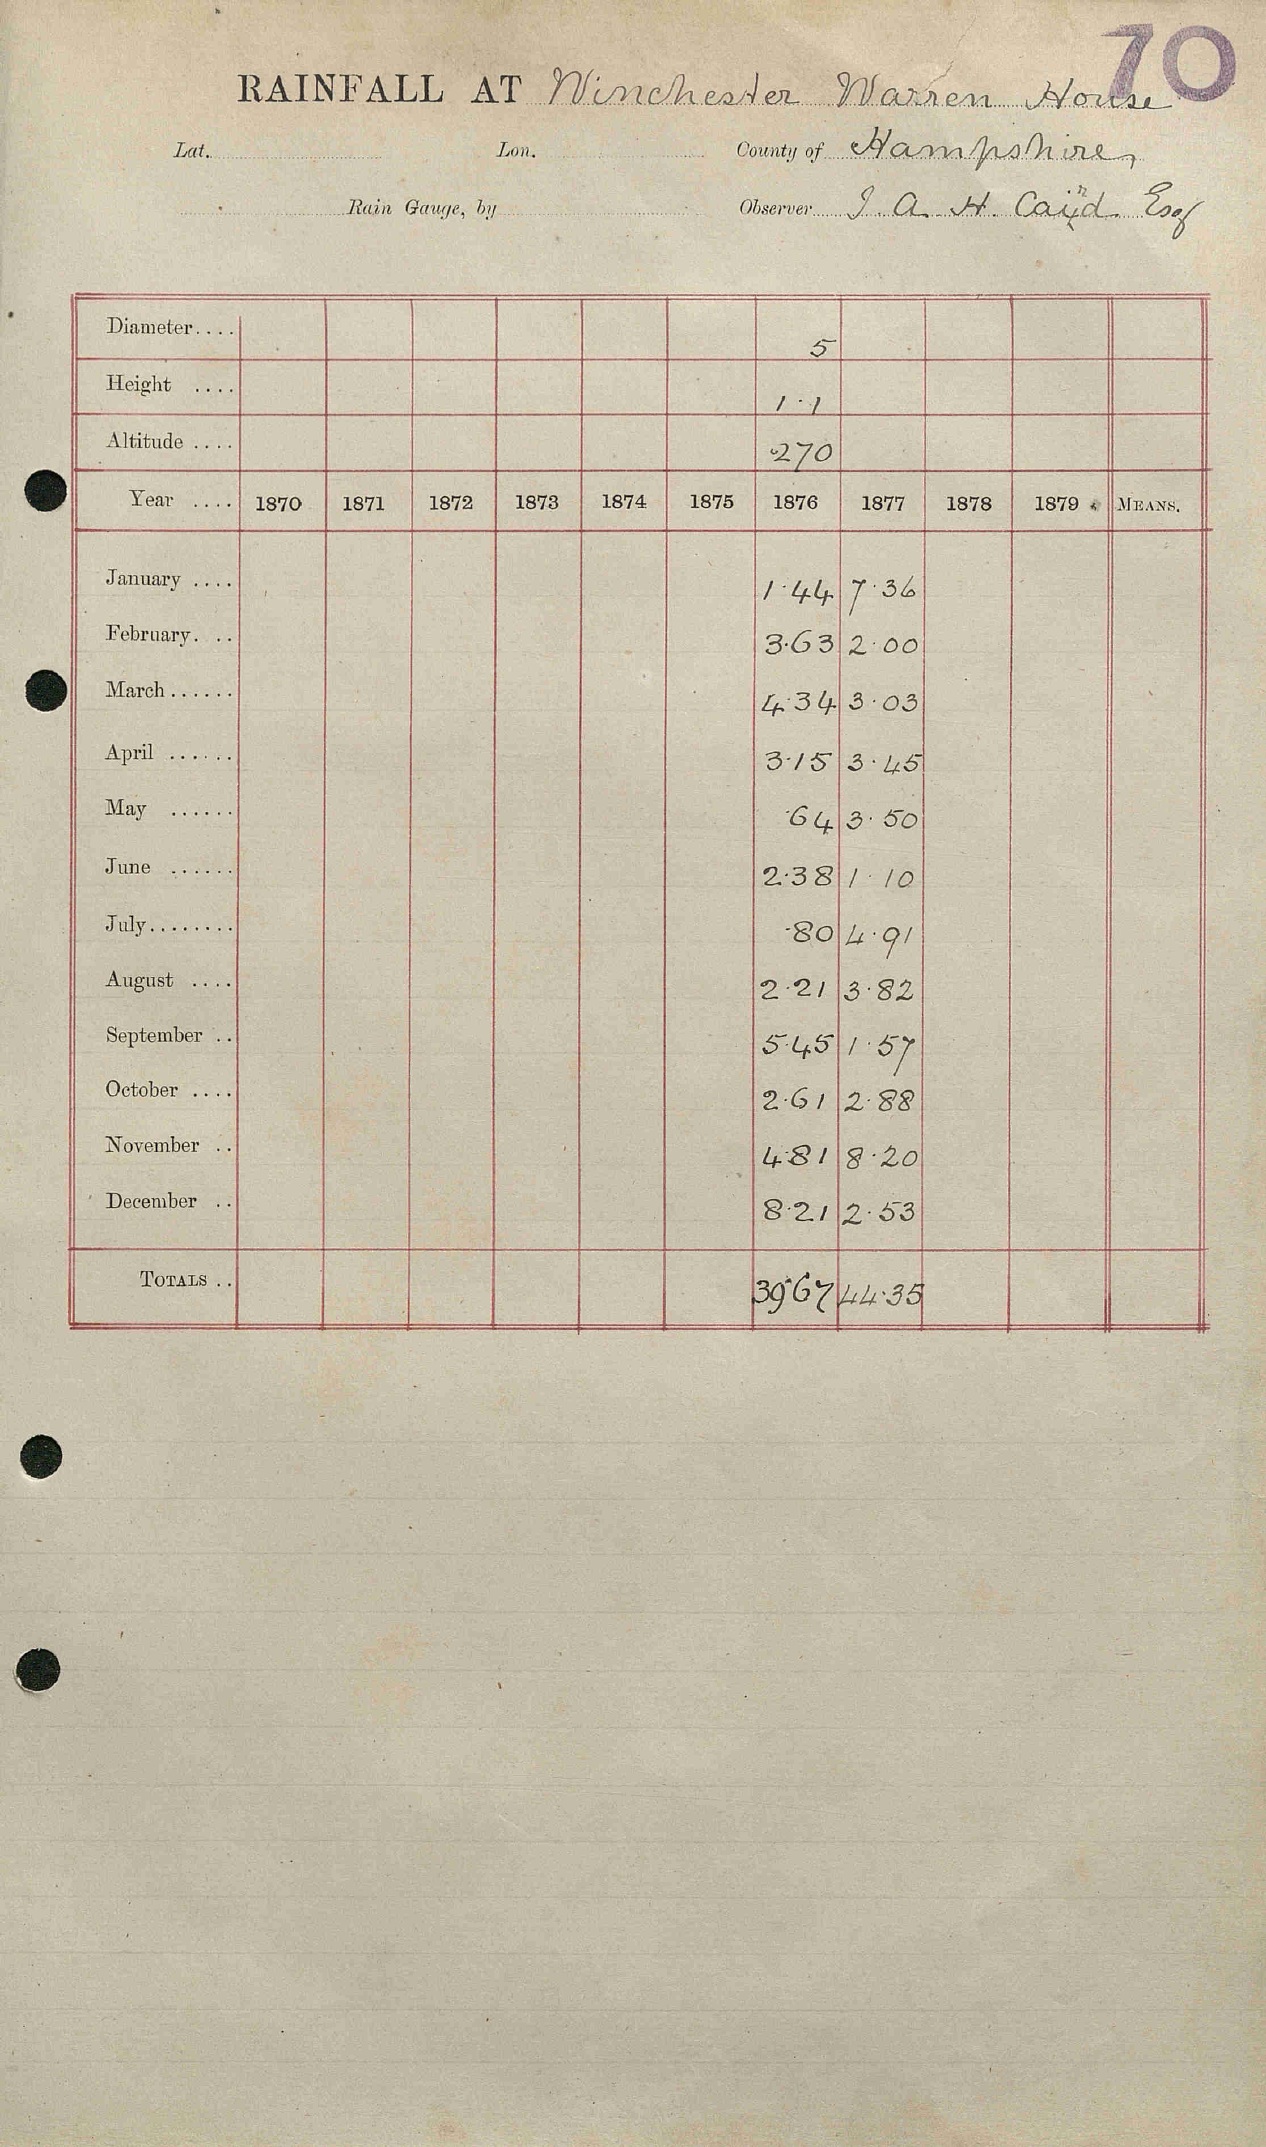 70
RAINFALL AT Winchester Warren House
Lat. Lon. County of Hampshire,
Rain Gauge, by Observer J. A. H. Esq
Diameter.... 5
Height .... 1·1
Altitude .... 270
Year .... 1870 1871 1872 1873 1874 1875 1876 1877 1878 1879 MEANS.
January .... 1·44 7·36
February. .. 3·63 2·00
March...... 4·34 3·03
April ...... 3·15 3·45
May ...... ·64 3·50
June ...... 2·38 1·10
July........ ·80 4·91
August .... 2·21 3·82
September .. 5·45 1·57
October .... 2·61 2·88
November .. 4·81 8·20
December .. 8·21 2·53
TOTALS .. 39·67 44·35